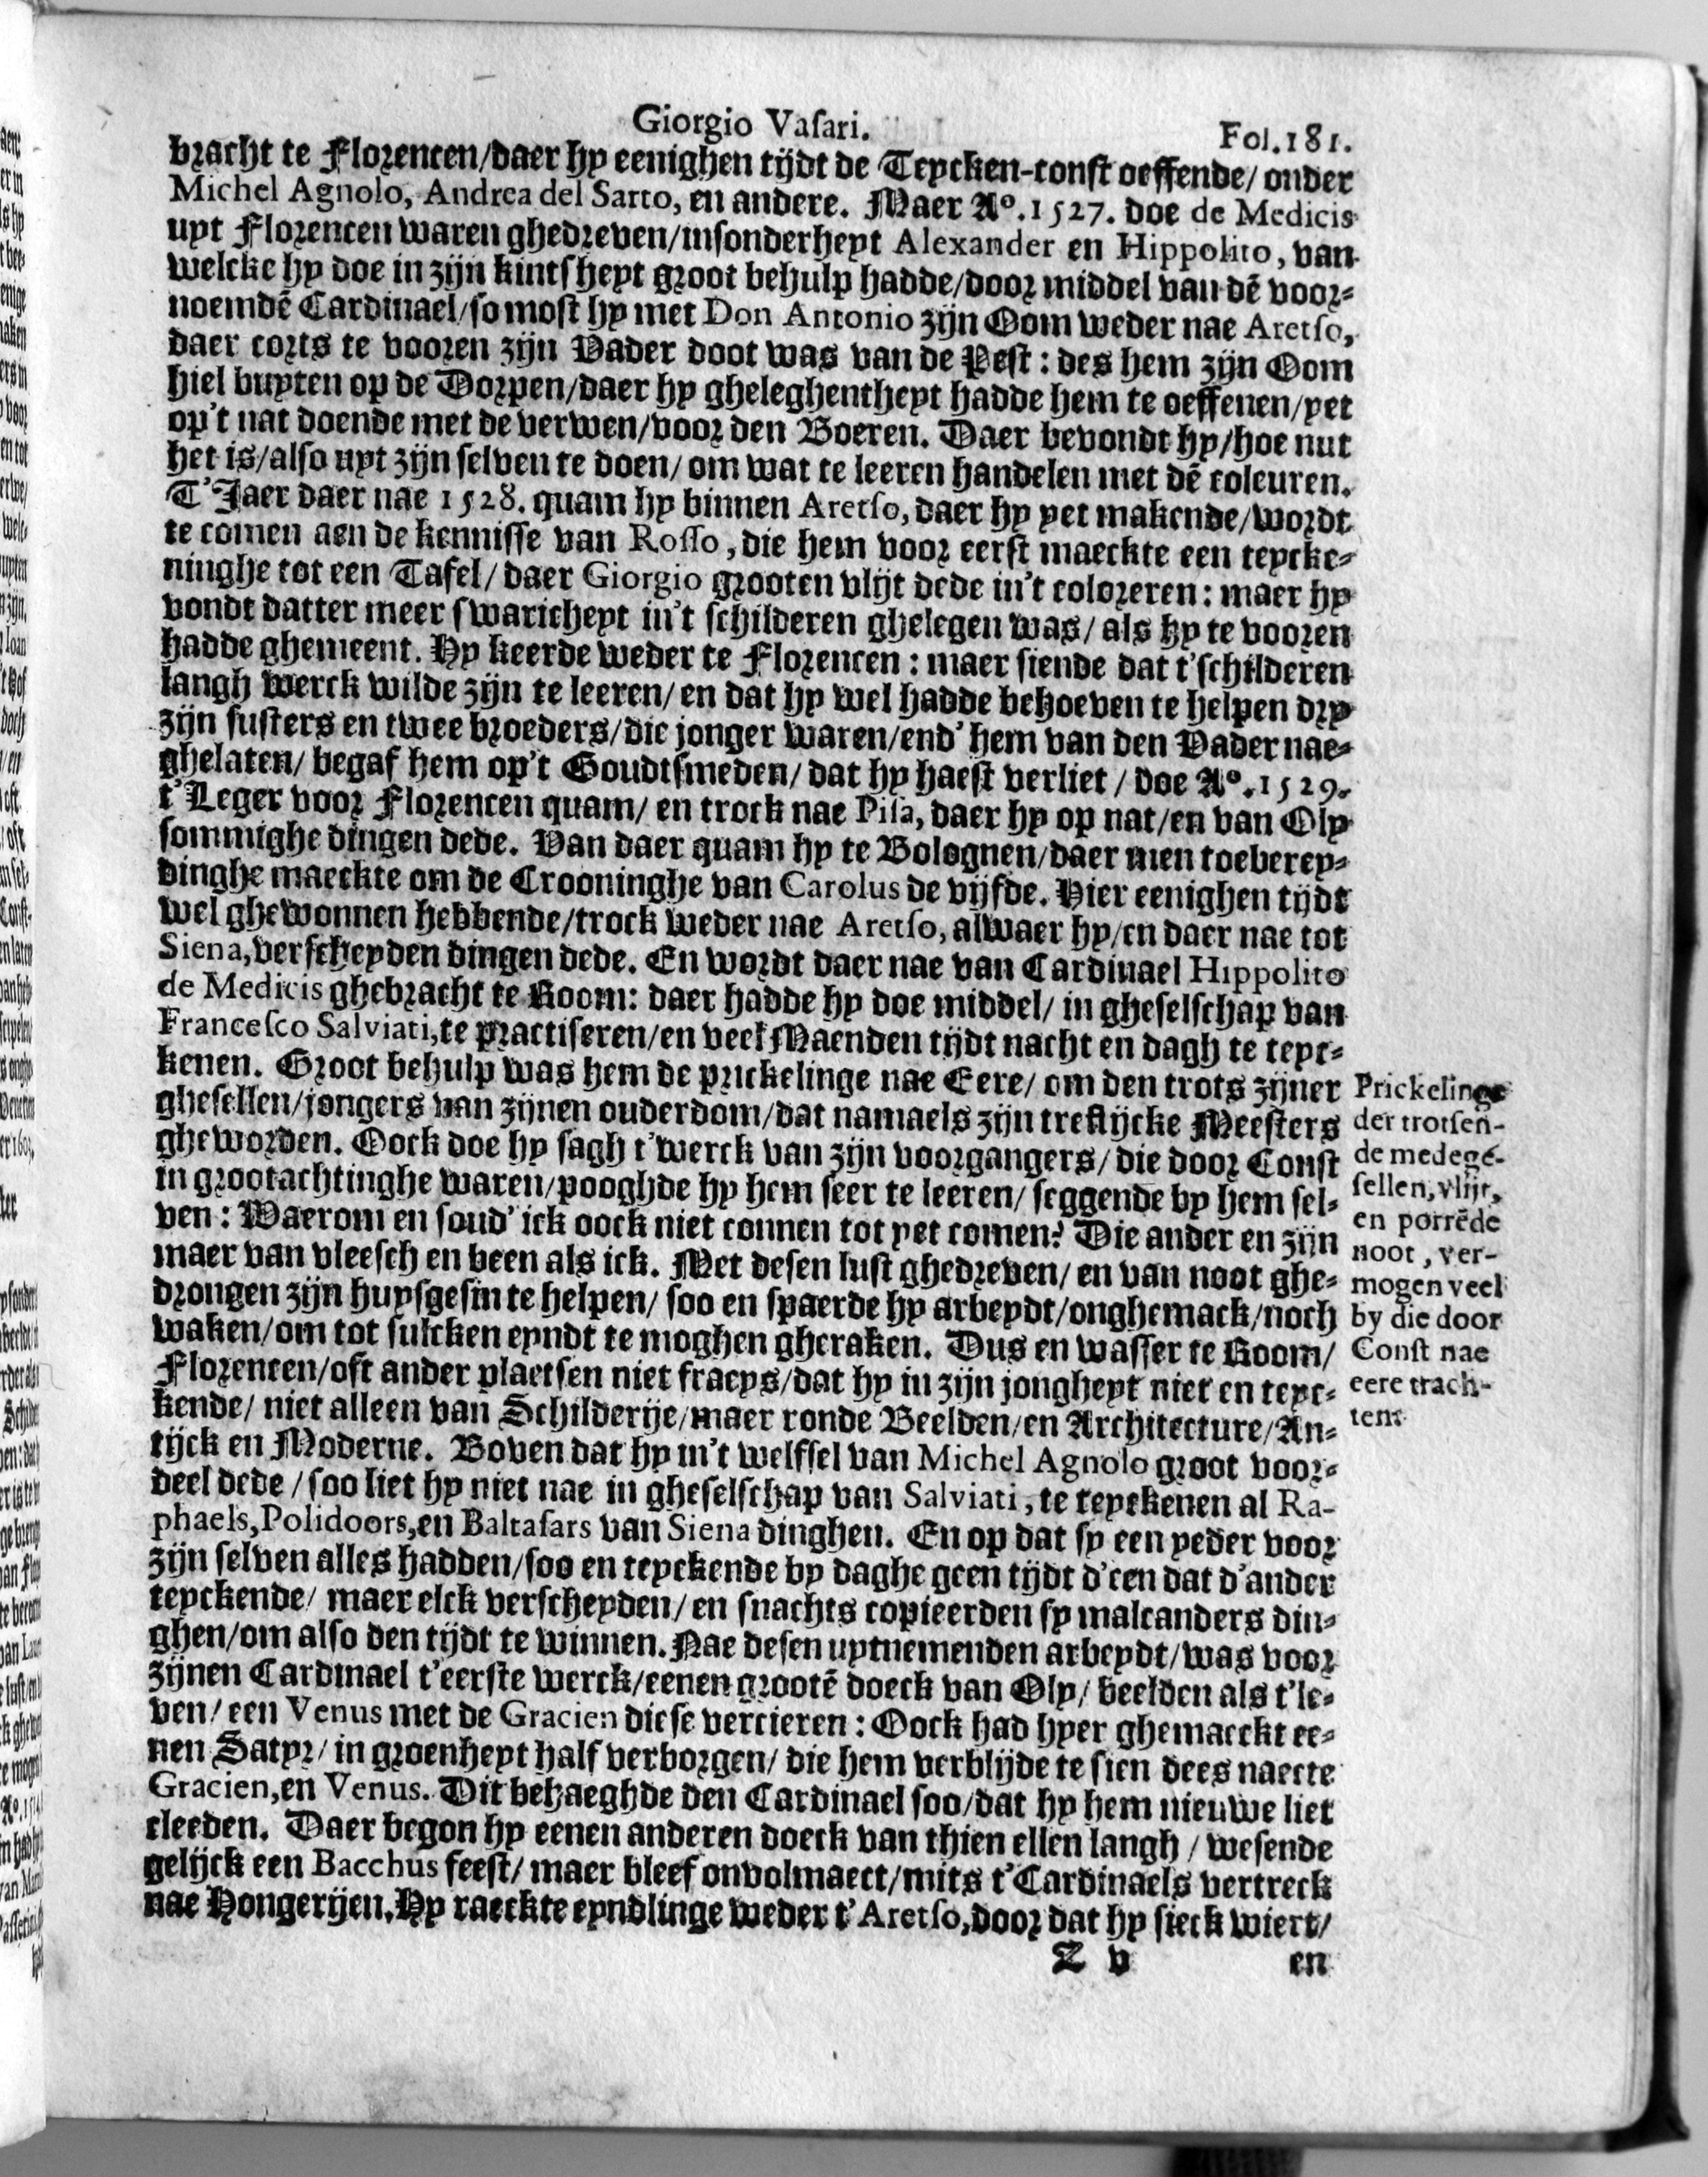 Giorgio Vaſari.
Fol. 181.
bracht te Florencen/daer hy eenighen tijdt de Teycken-const oeffende/ onder
Michel Agnolo, Andrea del Sarto, en andere. Maer Aº. 1527. doe de Medicis
uyt Florencen waren ghedreven/insonderheyt Alexander en Hippolito, van
welcke hy doe in zijn kintsheyt groot behulp hadde/door middel van dē voor-
noemdē Cardinael/so most hy met Don Antonio zijn Oom weder nae Aretſo,
daer corts te vooren zijn Vader doot was van de Pest: des hem zijn Oom
hiel buyten op de Dorpen/daer hy gheleghentheyt hadde hem te oeffenen/yet
op't nat doende met de verwen/voor den Boeren. Daer bevondt hy/hoe nut
het is/also uyt zijn selven te doen/ om wat te leeren handelen met dē coleuren.
T'Jaer daer nae 1528. quam hy binnen Aretſo, daer hy yet makende/wordt
te comen aen de kennisse van Roſſo, die hem voor eerst maeckte een teycke-
ninghe tot een Tafel/ daer Giorgio grooten vlijt dede in't coloreren: maer hy
vondt datter meer swaricheyt in't schilderen ghelegen was/ als hy te vooren
hadde ghemeent. Hy keerde weder te Florencen: maer siende dat t'schilderen
langh werck wilde zijn te leeren/ en dat hy wel hadde behoeven te helpen dry
zijn susters en twee broeders/die jonger waren/end' hem van den Vader nae-
ghelaten/ begaf hem op't Goudtsmeden/ dat hy haest verliet / doe Aº. 1529.
t'Leger voor Florencen quam/ en trock nae Piſa, daer hy op nat/en van Oly
sommighe dingen dede. Van daer quam hy te Bolognen/daer men toeberey-
dinghe maeckte om de Crooninghe van Carolus de vijfde. Hier eenighen tijdt
wel ghewonnen hebbende/trock weder nae Aretſo, alwaer hy/en daer nae tot
Siena, verscheyden dingen dede. En wordt daer nae van Cardinael Hippolito
de Medicis ghebracht te Room: daer hadde hy doe middel/ in gheselschap van
Franceſco Salviati, te practiseren/en veel Maenden tijdt nacht en dagh te teyc-
kenen. Groot behulp was hem de prickelinge nae Eere/ om den trots zijner
ghesellen/jongers van zijnen ouderdom/dat namaels zijn treflijcke Meesters
gheworden. Oock doe hy sagh t'werck van zijn voorgangers/ die door Const
in grootachtinghe waren/pooghde hy hem seer te leeren/ seggende by hem sel-
ven: Waerom en soud' ick oock niet connen tot yet comen? Die ander en zijn
maer van vleesch en been als ick. Met desen lust ghedreven/ en van noot ghe-
drongen zijn huysgesin te helpen/ soo en spaerde hy arbeydt/onghemack/noch
waken/om tot sulcken eyndt te moghen gheraken. Dus en wasser te Room/
Florencen/oft ander plaetsen niet fraeys/dat hy in zijn jongheyt niet en teyc-
kende/ niet alleen van Schilderije/maer ronde Beelden/en Architecture/An-
tijck en Moderne. Boven dat hy in't welfsel van Michel Agnolo groot voor-
deel dede / soo liet hy niet nae in gheselschap van Salviati, te teyckenen al Ra-
phaels, Polidoors, en Baltaſars van Siena dinghen. En op dat sy een yeder voor
zijn selven alles hadden/soo en teyckende by daghe geen tijdt d'een dat d'ander
teyckende/ maer elck verscheyden/ en snachts copieerden sy malcanders din-
ghen/om also den tijdt te winnen. Nae desen uytnemenden arbeydt/was voor
zijnen Cardinael t'eerste werck/eenen grootē doeck van Oly/ beelden als t'le-
ven/ een Venus met de Gracien diese vercieren: Oock had hyer ghemaeckt ee-
nen Satyr/ in groenheyt half verborgen/ die hem verblijde te sien dees naecte
Gracien, en Venus. Dit behaeghde den Cardinael soo/dat hy hem nieuwe liet
cleeden. Daer begon hy eenen anderen doeck van thien ellen langh / wesende
gelijck een Bacchus feest/ maer bleef onvolmaect/mits t'Cardinaels vertreck
nae Hongerijen. Hy raeckte eyndlinge weder t'Aretſo, door dat hy sieck wiert/
Z v
en
Prickelinge
der trotſen-
de medege-
ſellen, vlijt,
en porrēde
noot, ver-
mogen veel
by die door
Conſt nae
eere trach-
ten.